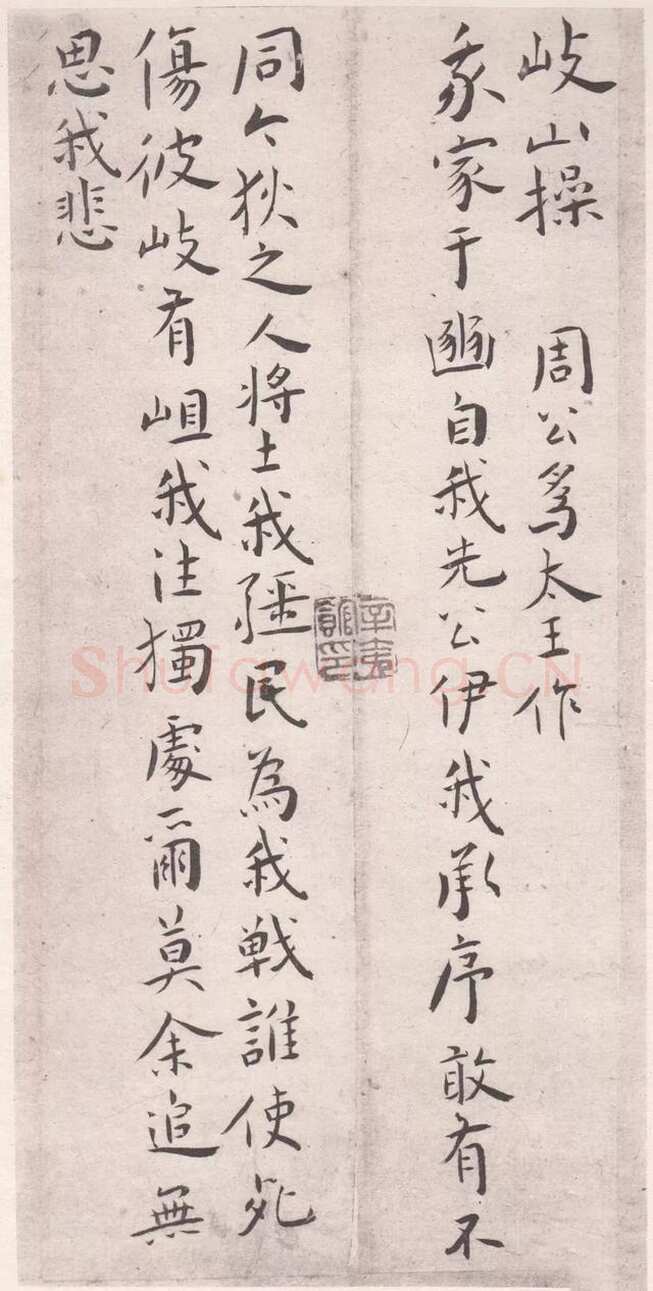 岐山操 周公爲太王作
我家于豳自我先公伊我承序敢有不
同今狄之人将土我疆民為我戦誰使死
傷彼岐有岨我往獨處爾莫余追無
思我悲
辛夷館印
Shufawang.CN